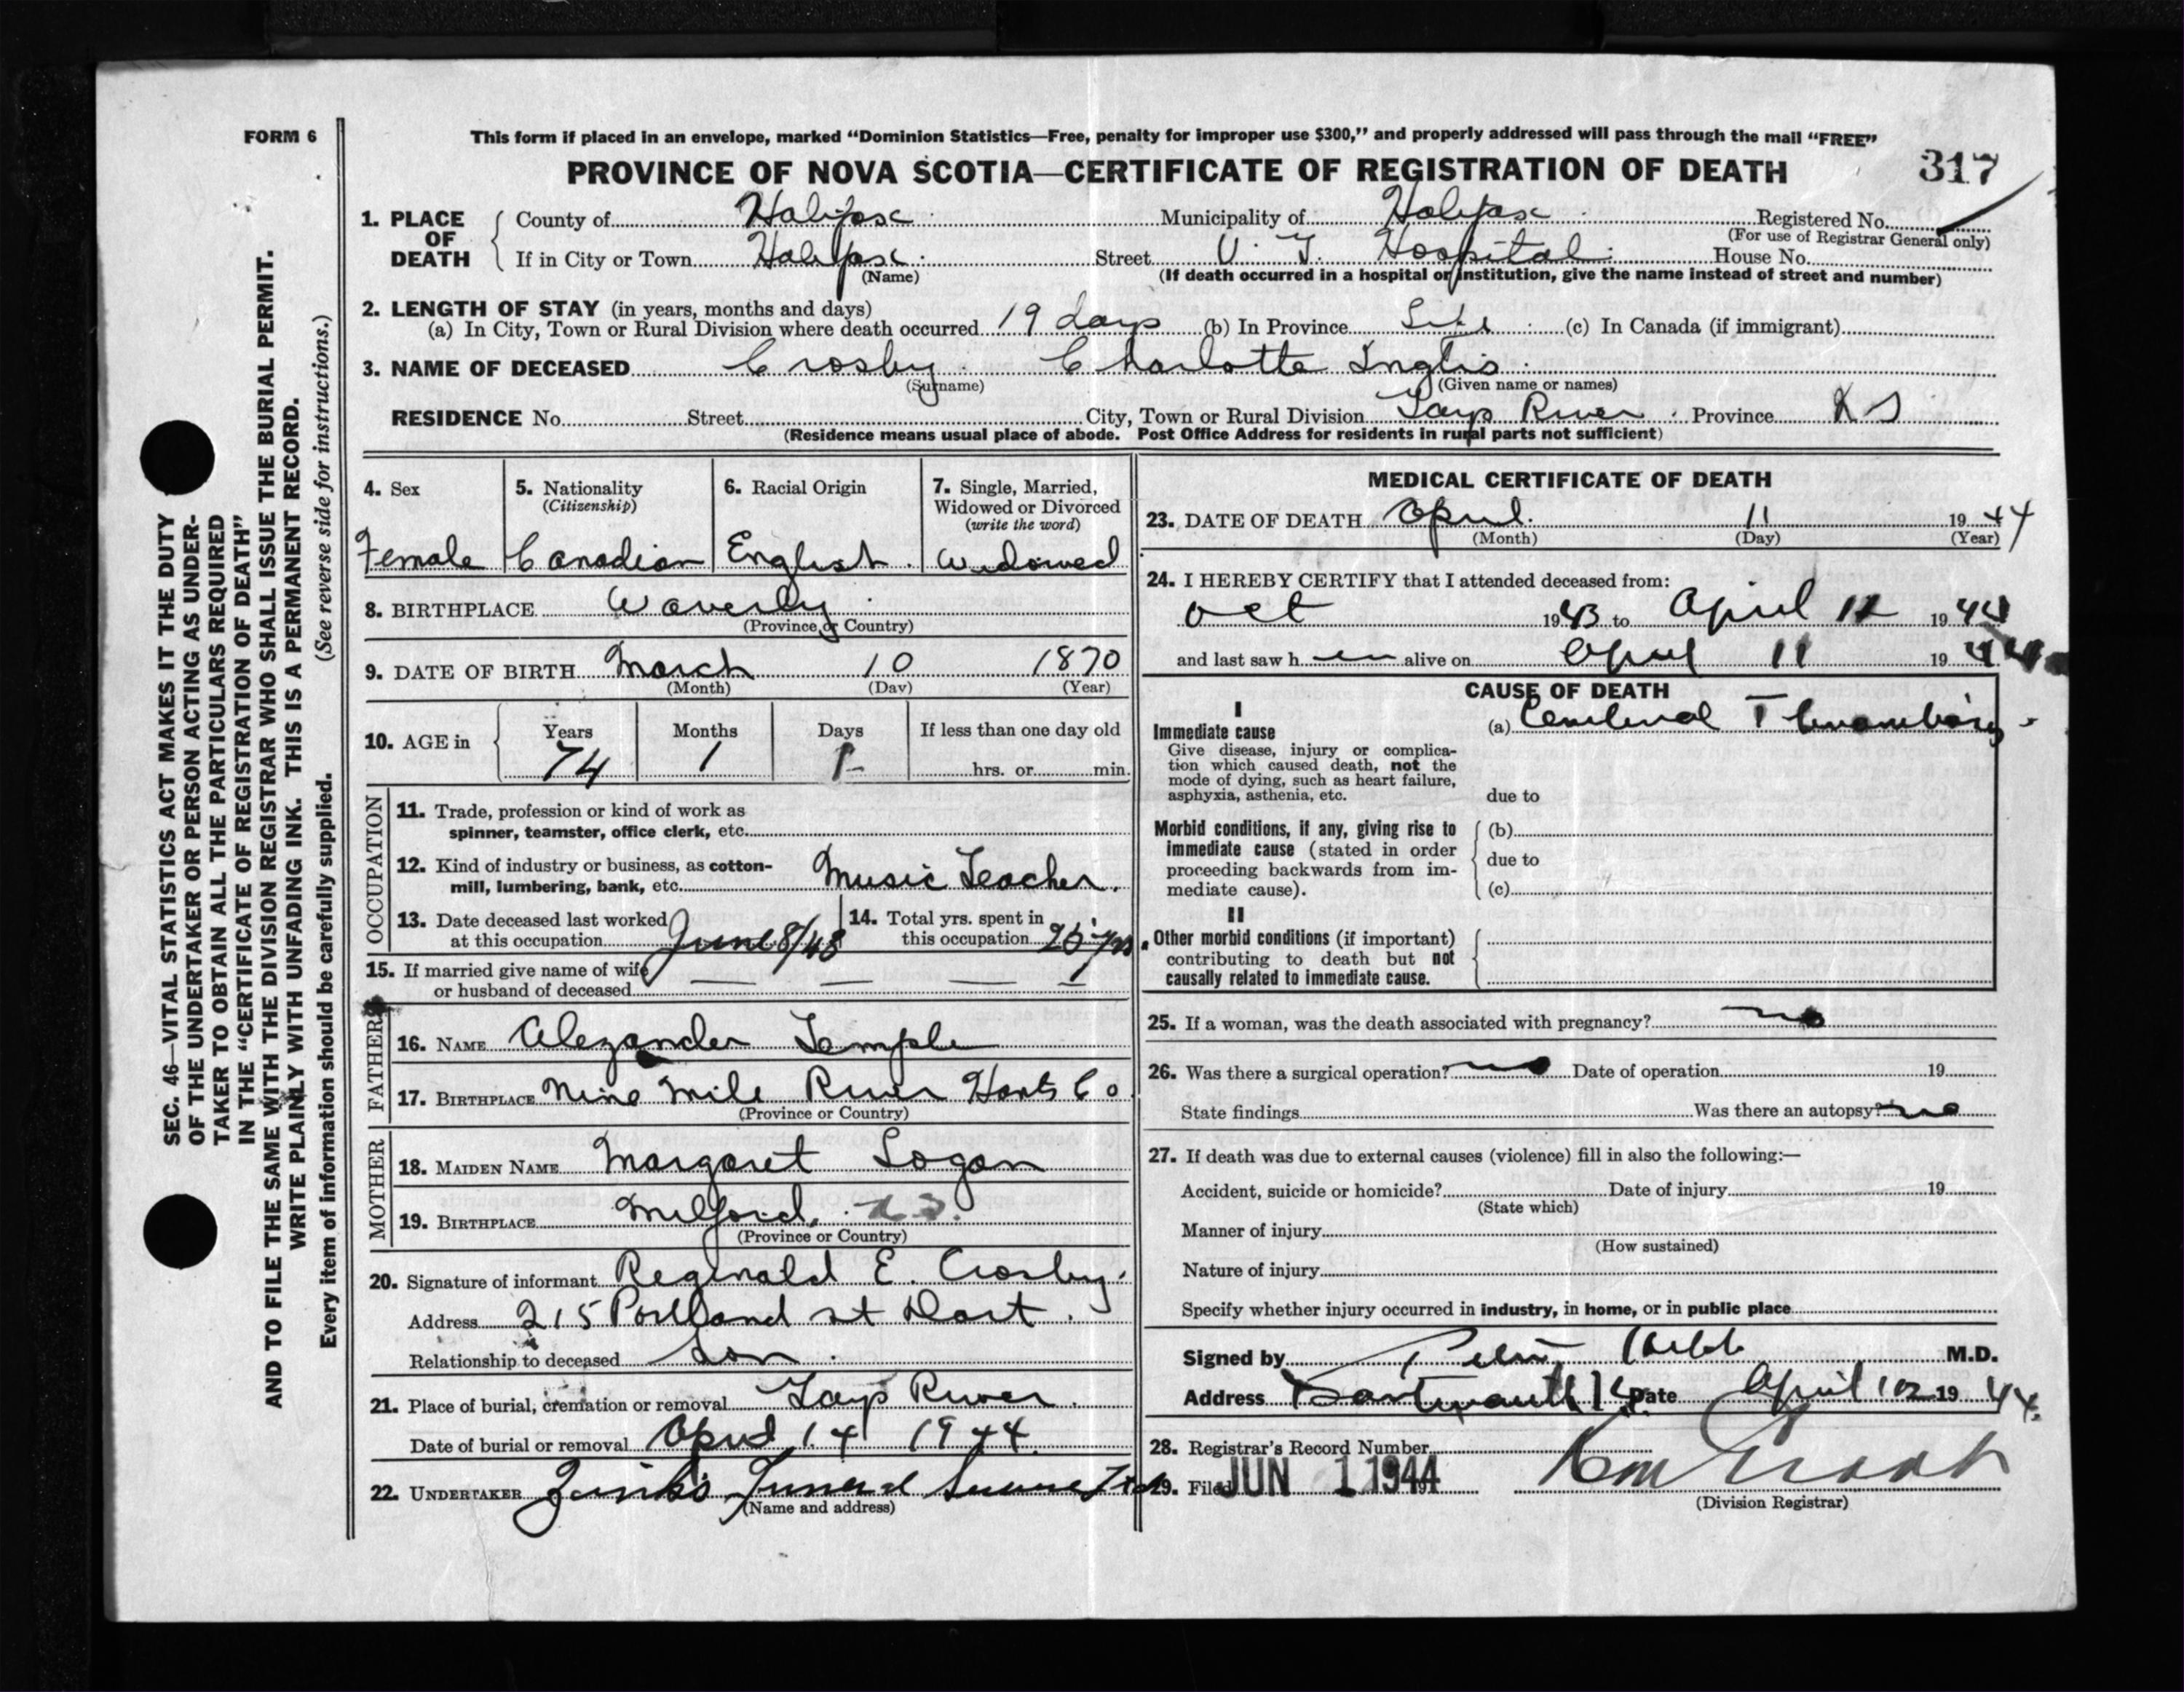 FORM 6
This form if placed in an envelope, marked “Dominion Statistics—Free, penalty for improper use $300,” and properly addressed will pass through the mail “FREE”
PROVINCE OF NOVA SCOTIA—CERTIFICATE OF REGISTRATION OF DEATH
317
SEC. 46—VITAL STATISTICS ACT MAKES IT THE DUTY
OF THE UNDERTAKER OR PERSON ACTING AS UNDER-
TAKER TO OBTAIN ALL THE PARTICULARS REQUIRED
IN THE “CERTIFICATE OF REGISTRATION OF DEATH”
AND TO FILE THE SAME WITH THE DIVISION REGISTRAR WHO SHALL ISSUE THE BURIAL PERMIT.
WRITE PLAINLY WITH UNFADING INK. THIS IS A PERMANENT RECORD.
Every item of information should be carefully supplied. (See reverse side for instructions.)
1. PLACE OF DEATH
County of Halifax Municipality of Halifax Registered No.
(For use of Registrar General only)
If in City or Town Halifax Street V. G. Hospital House No.
(Name) (If death occurred in a hospital or institution, give the name instead of street and number)
2. LENGTH OF STAY (in years, months and days)
(a) In City, Town or Rural Division where death occurred 19 days (b) In Province Life (c) In Canada (if immigrant)
3. NAME OF DECEASED Crosby Charlotte Inglis
(Surname) (Given name or names)
RESIDENCE No. Street City, Town or Rural Division Gays River Province N S
(Residence means usual place of abode. Post Office Address for residents in rural parts not sufficient)
4. Sex
Female
5. Nationality
(Citizenship)
Canadian
6. Racial Origin
English
7. Single, Married,
Widowed or Divorced
(write the word)
Widowed
8. BIRTHPLACE Waverly
(Province or Country)
9. DATE OF BIRTH March 10 1870
(Month) (Day) (Year)
10. AGE in
Years Months Days If less than one day old
74 1 1 hrs. or min.
OCCUPATION
11. Trade, profession or kind of work as
spinner, teamster, office clerk, etc.
12. Kind of industry or business, as cotton-
mill, lumbering, bank, etc. Music Teacher.
13. Date deceased last worked
at this occupation June 8/43
14. Total yrs. spent in
this occupation 25 yrs
15. If married give name of wife
or husband of deceased
FATHER
16. NAME Alexander Temple
17. BIRTHPLACE Nine Mile River Hants Co
(Province or Country)
MOTHER
18. MAIDEN NAME Margaret Logan
19. BIRTHPLACE Milford, N.S.
(Province or Country)
20. Signature of informant Reginald E. Crosby
Address 215 Portland st Dart.
Relationship to deceased Son
21. Place of burial, cremation or removal Gays River.
Date of burial or removal April 14 1944
22. UNDERTAKER Zink's Funeral Service Ltd
(Name and address)
MEDICAL CERTIFICATE OF DEATH
23. DATE OF DEATH April 11 1944
(Month) (Day) (Year)
24. I HEREBY CERTIFY that I attended deceased from:
Oct 1943 to April 11 1944
and last saw h er alive on April 11 1944
CAUSE OF DEATH
I
Immediate cause
(a) Cerebral Thrombosis
Give disease, injury or complica-
tion which caused death, not the
mode of dying, such as heart failure,
asphyxia, asthenia, etc.
due to
Morbid conditions, if any, giving rise to
immediate cause (stated in order
proceeding backwards from im-
mediate cause).
(b)
due to
(c)
II
Other morbid conditions (if important)
contributing to death but not
causally related to immediate cause.
25. If a woman, was the death associated with pregnancy? no
26. Was there a surgical operation? no Date of operation 19
State findings Was there an autopsy? no
27. If death was due to external causes (violence) fill in also the following:—
Accident, suicide or homicide? Date of injury 19
(State which)
Manner of injury
(How sustained)
Nature of injury
Specify whether injury occurred in industry, in home, or in public place
Signed by M.D.
Address Dartmouth Date April 19 44
28. Registrar's Record Number
29. Filed JUN 1 1944
(Division Registrar)